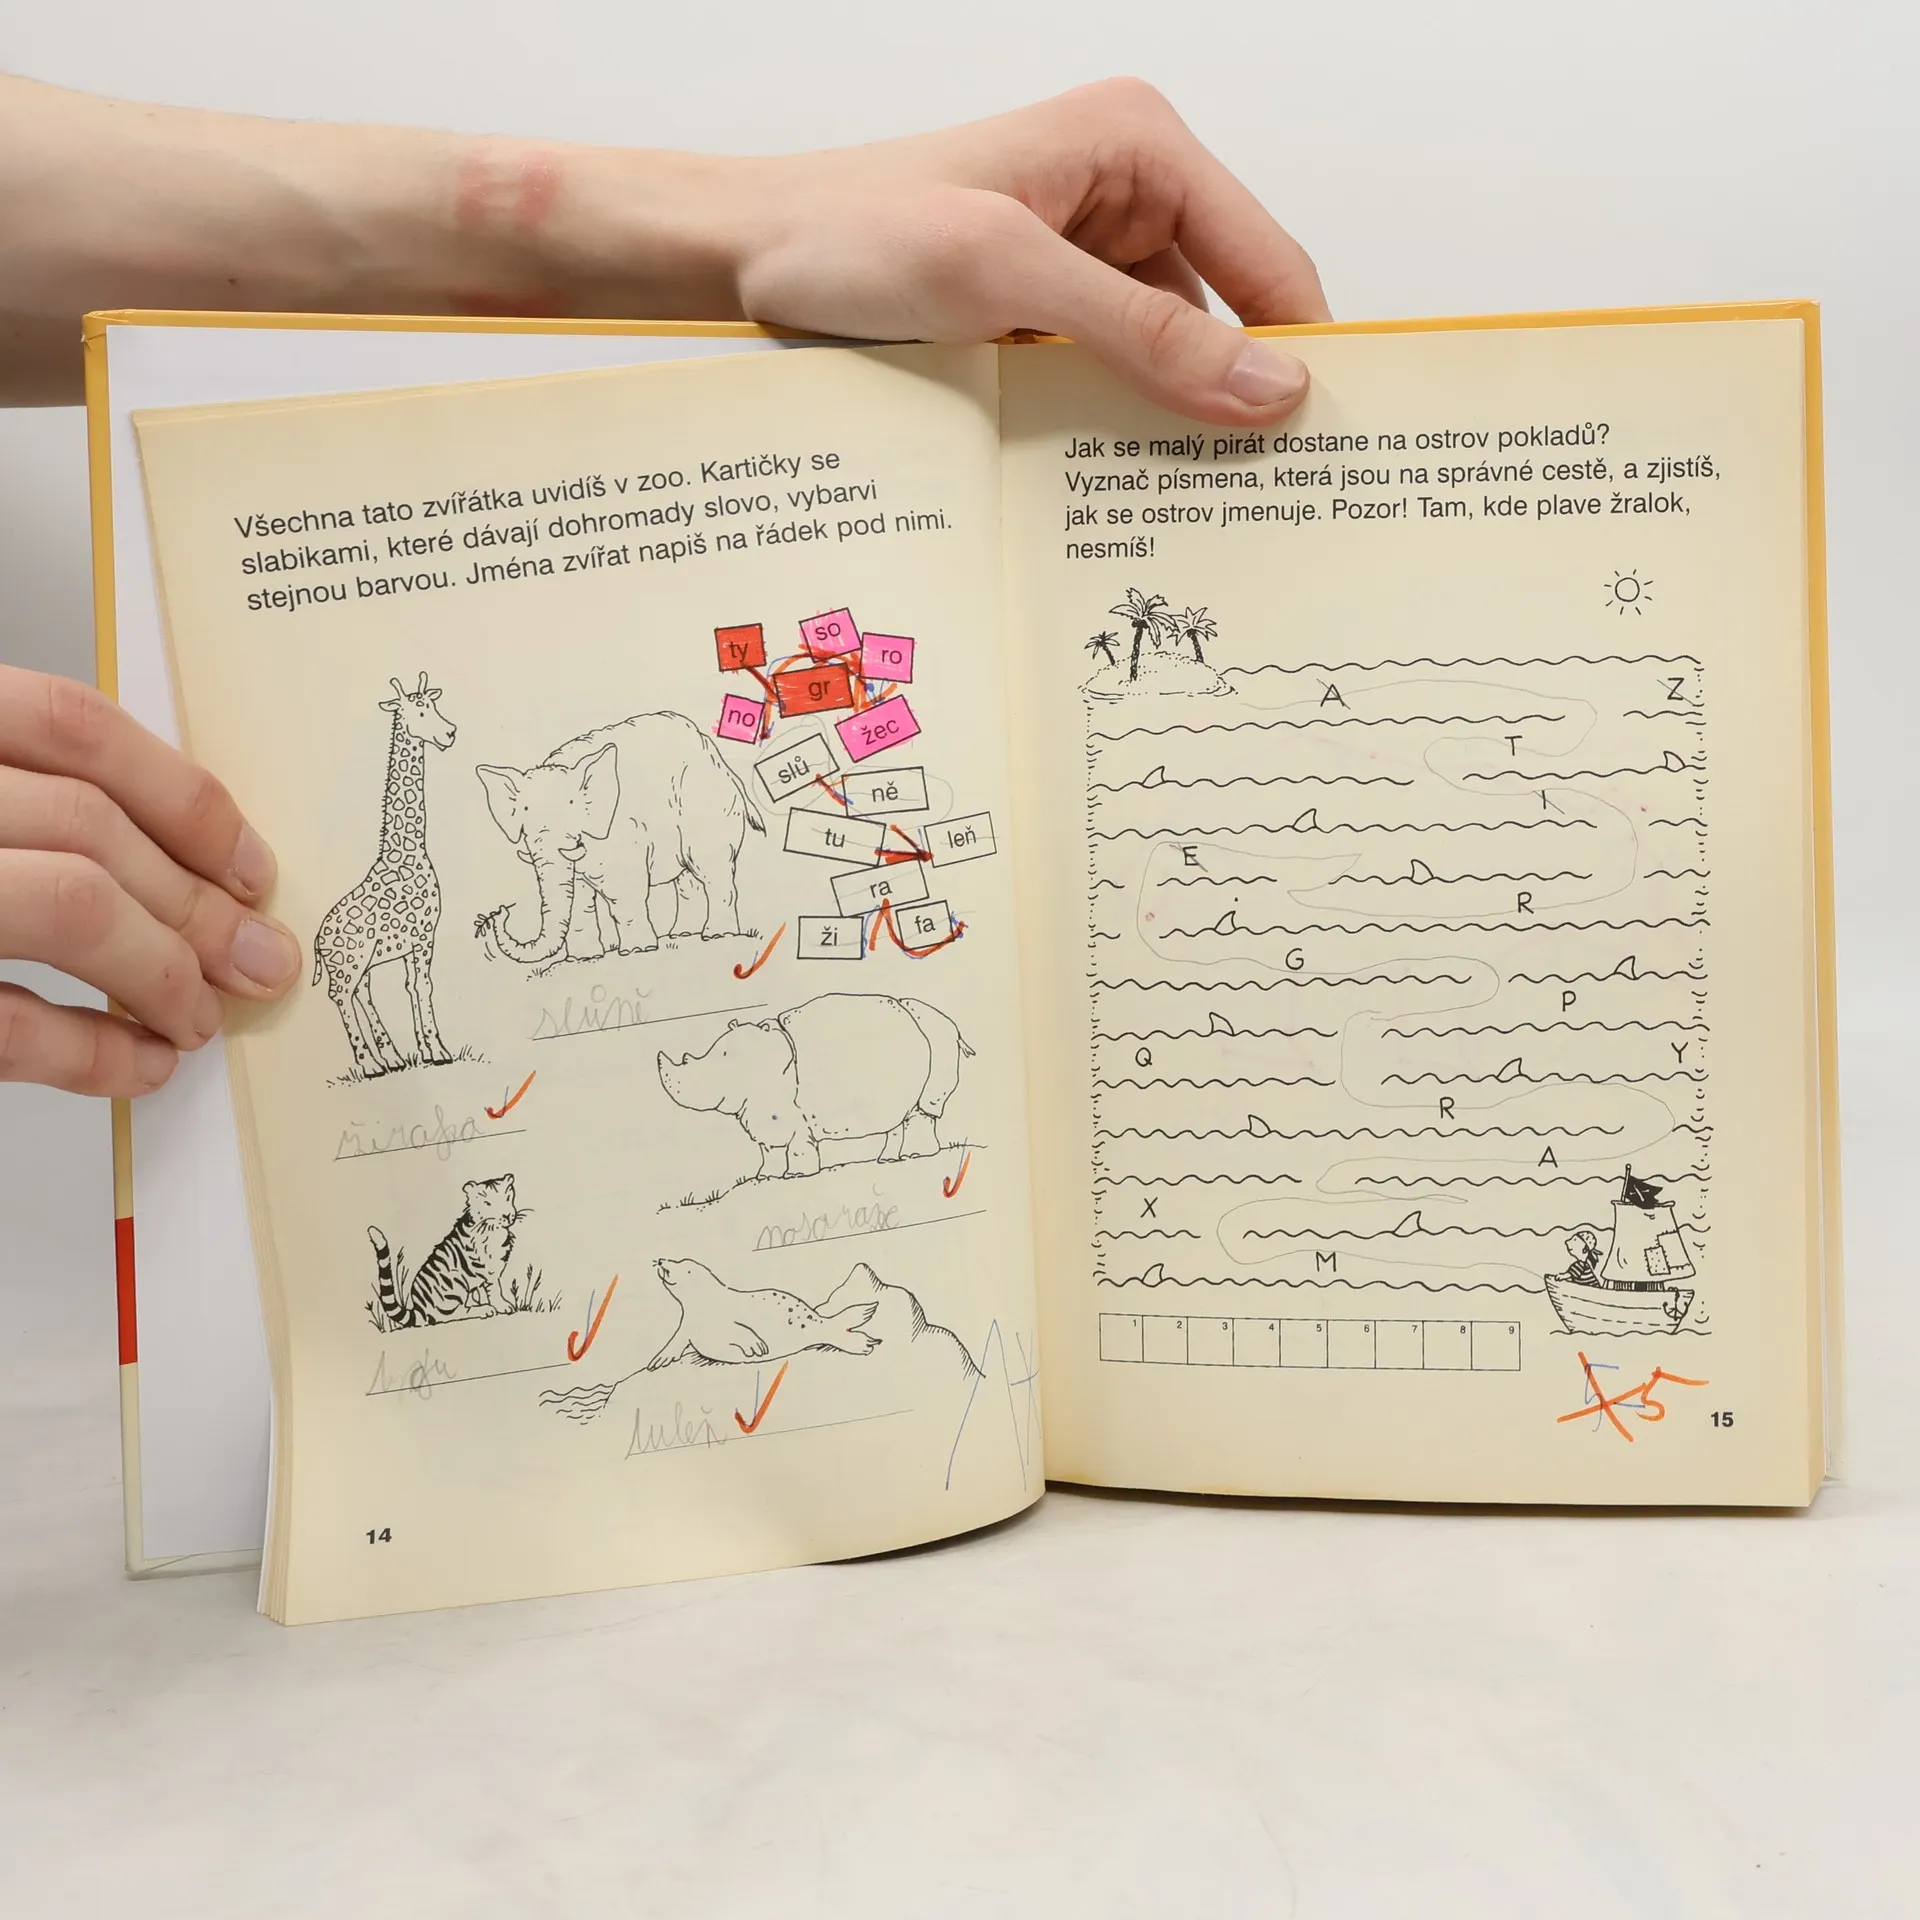 Všechna tato zvířátka uvidíš v zoo. Kartičky se
slabikami, které dávají dohromady slovo, vybarvi
stejnou barvou. Jména zvířat napiš na řádek pod nimi.
ty
so
ro
gr
no
žec
slů
ně
tu
leň
ra
ži
fa
slůně
žirafa
tygr
tuleň
14
Jak se malý pirát dostane na ostrov pokladů?
Vyznač písmena, která jsou na správné cestě, a zjistíš,
jak se ostrov jmenuje. Pozor! Tam, kde plave žralok,
nesmíš!
A Z
T
I
E
R
G
P
Q Y
R
A
X
M
1 2 3 4 5 6 7 8 9
5 5
15